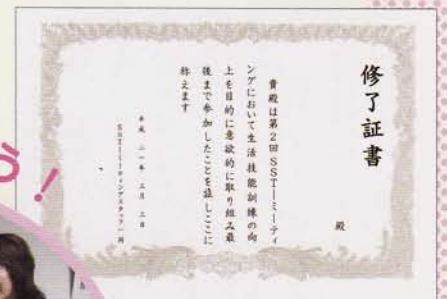 修了証書
殿
貴殿は第2回SSTーミーティ
ングにおいて生活技能訓練の向
上を目的に意欲的に取り組み最
後まで参加したことを証しここに
称えます
平成二一年三月三日
SSTーミーティングスタッフ一同
う!